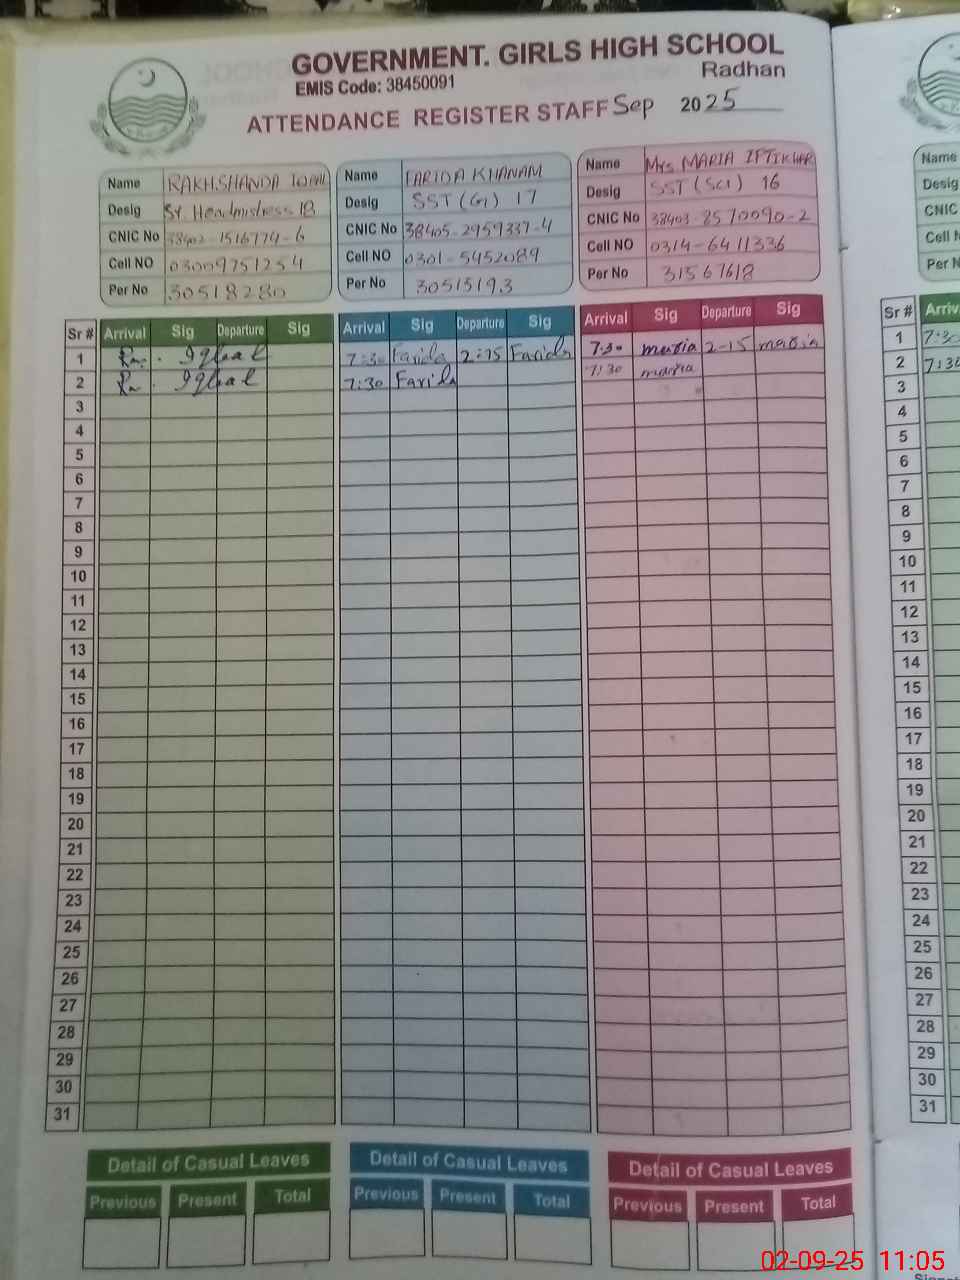 GOVERNMENT. GIRLS HIGH SCHOOL
Radhan
EMIS Code: 38450091
ATTENDANCE REGISTER STAFF Sep 2025
Name RAKHSHANDA IQBAL
Desig Sr. Headmistress 18
CNIC No 38402-1516774-6
Cell NO 03009751254
Per No 30518280
Name FARIDA KHANAM
Desig SST (G) 17
CNIC No 38405-2959337-4
Cell NO 0301-5452089
Per No 30515193
Name Mrs MARIA IFTIKHAR
Desig SST (SCI) 16
CNIC No 38403-8570090-2
Cell NO 0314-6411336
Per No 31567618
Name
Desig
CNIC
Cell N
Per N
Sr # Arrival Sig Departure Sig Arrival Sig Departure Sig Arrival Sig Departure Sig Sr # Arriv
1 Iqbal 7:30 Farida 2:15 Farida 7:30 maria 2-15 maria 1 7:30
2 Iqbal 7:30 Farida 7:30 maria 2 7:30
3 3
4 4
5 5
6 6
7 7
8 8
9 9
10 10
11 11
12 12
13 13
14 14
15 15
16 16
17 17
18 18
19 19
20 20
21 21
22 22
23 23
24 24
25 25
26 26
27 27
28 28
29 29
30 30
31 31
Detail of Casual Leaves Detail of Casual Leaves Detail of Casual Leaves
Previous Present Total Previous Present Total Previous Present Total
02-09-25 11:05